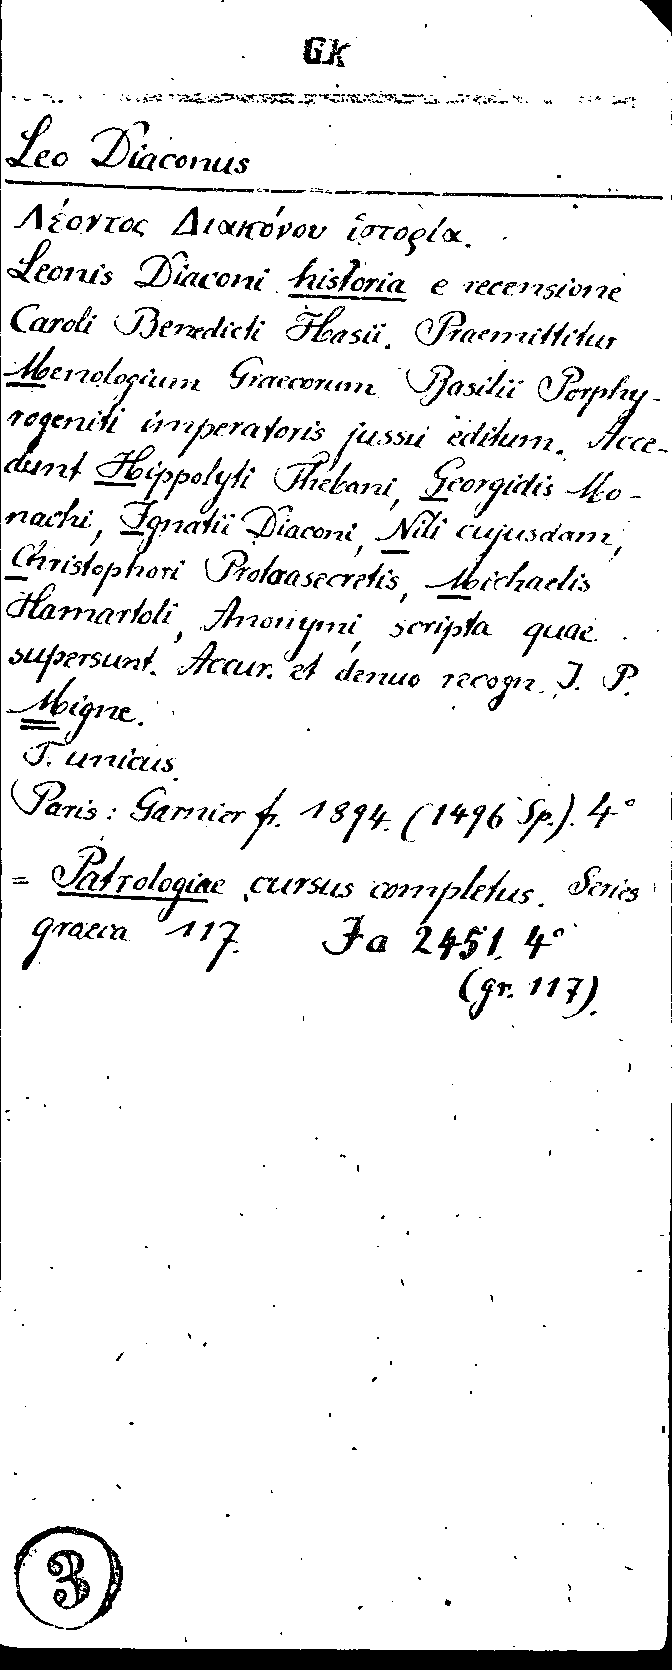 GK
Leo Diaconus
Λέοντος Διακόνου ἱστορία.
Leonis Diaconi historia e recensione
Caroli Benedicti Hasii. Praemittitur
Menologium Graecorum Basilii Porphy-
rogeniti imperatoris jussu editum. Acce-
dunt Hippolyti Thebani, Georgidis Mo-
nachi, Ignatii Diaconi, Nili cujusdam,
Christophori Protoasecretis, Michaelis
Hamartoli, Anonymi, scripta quae
supersunt. Accur. et denuo recogn. J. P.
Migne.
T. unicus.
Paris: Garnier fr. 1894. (1496 Sp.). 4°
= Patrologiae cursus completus. Series
graeca 117. Ja 2451. 4°
(gr. 117).
3